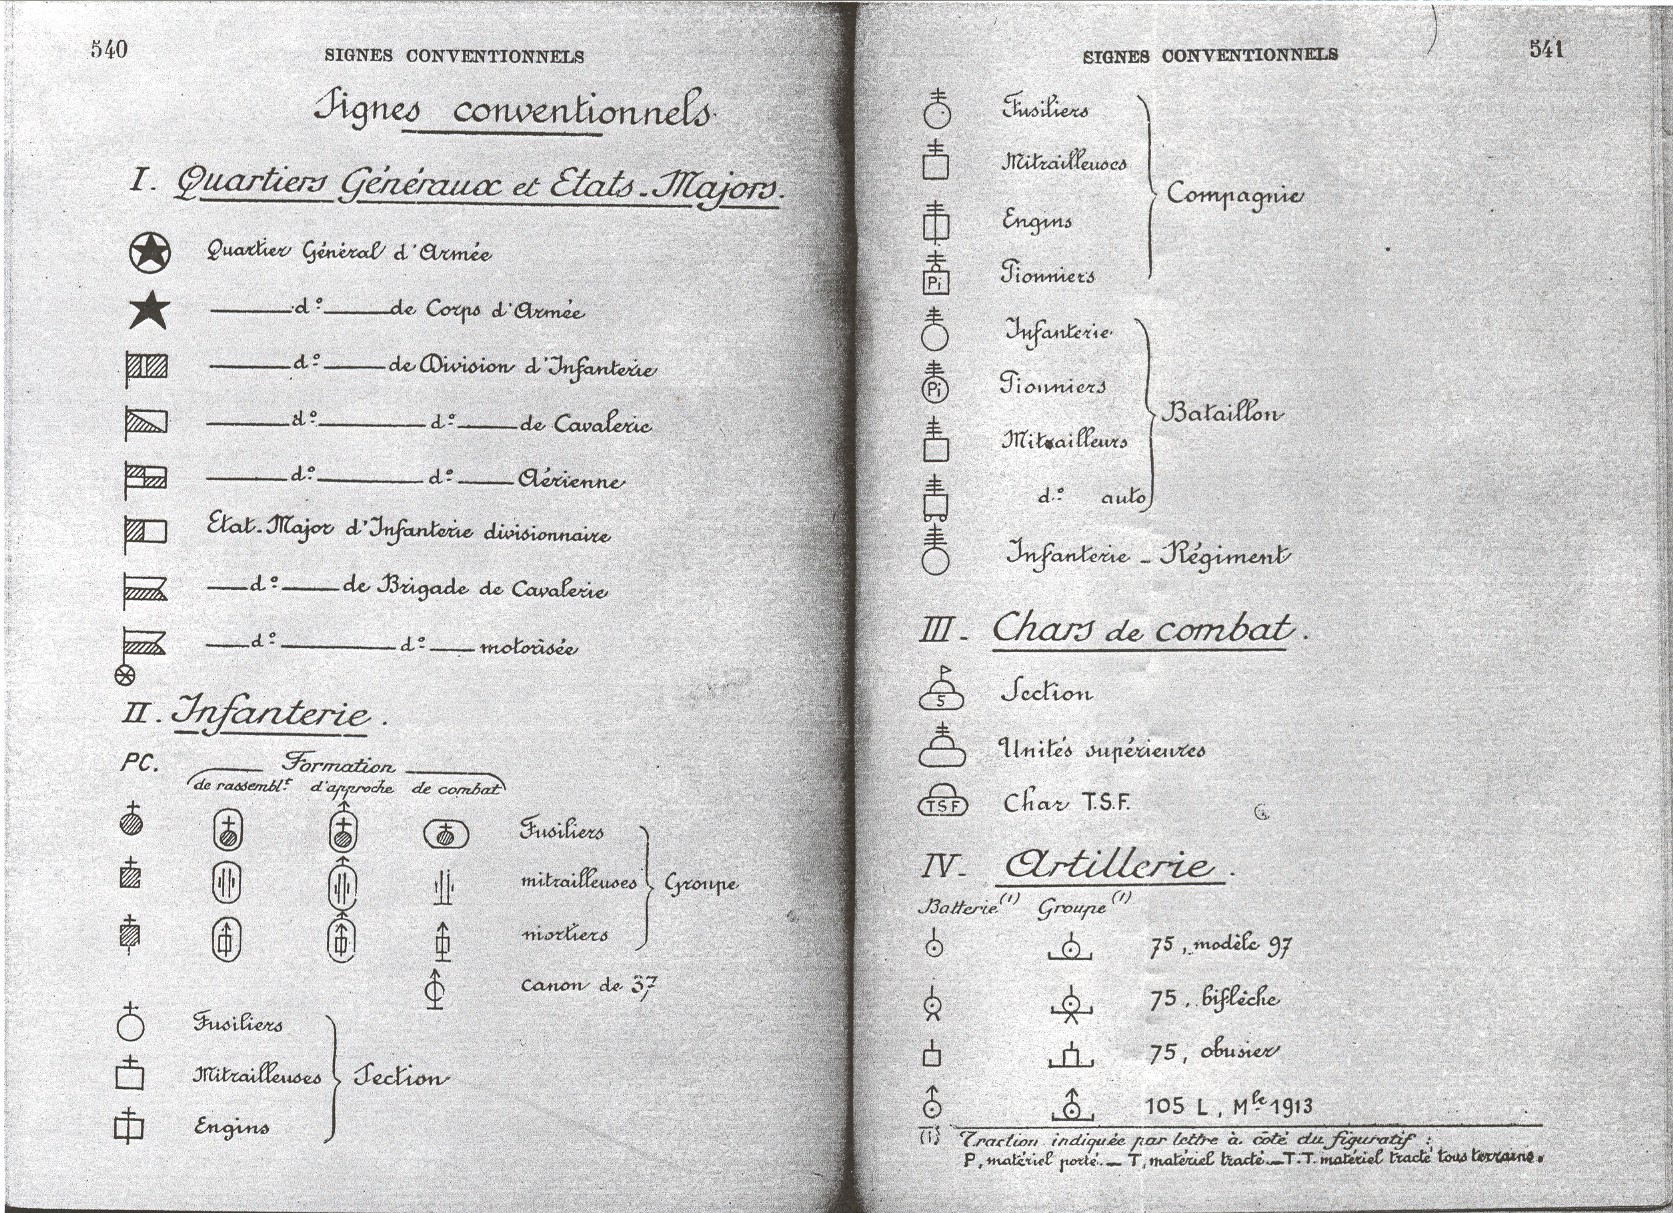 540
SIGNES CONVENTIONNELS
Signes conventionnels.
I. Quartiers Généraux et Etats-Majors.
Quartier Général d'Armée
d.° de Corps d'Armée
d.° de Division d'Infanterie
d.° d.° de Cavalerie
d.° d.° Aérienne
Etat-Major d'Infanterie divisionnaire
d.° de Brigade de Cavalerie
d.° d.° motorisée
II. Infanterie.
PC. Formation
de rassemblt. d'approche de combat
Fusiliers
mitrailleuses
Groupe
mortiers
canon de 37
Fusiliers
Mitrailleuses
Section
Engins
SIGNES CONVENTIONNELS
541
Fusiliers
Mitrailleuses
Compagnie
Engins
Pi Pionniers
Infanterie
Pi Pionniers
Bataillon
Mitrailleurs
d.° auto
Infanterie - Régiment
III - Chars de combat.
S Section
Unités supérieures
TSF Char T.S.F.
IV - Artillerie.
Batterie (1) Groupe (1)
75, modèle 97
75, biflèche
75, obusier
105 L, Mle 1913
(1) Traction indiquée par lettre à côté du figuratif :
P, matériel porté. — T, matériel tracté. — T.T. matériel tracté tous terrains.